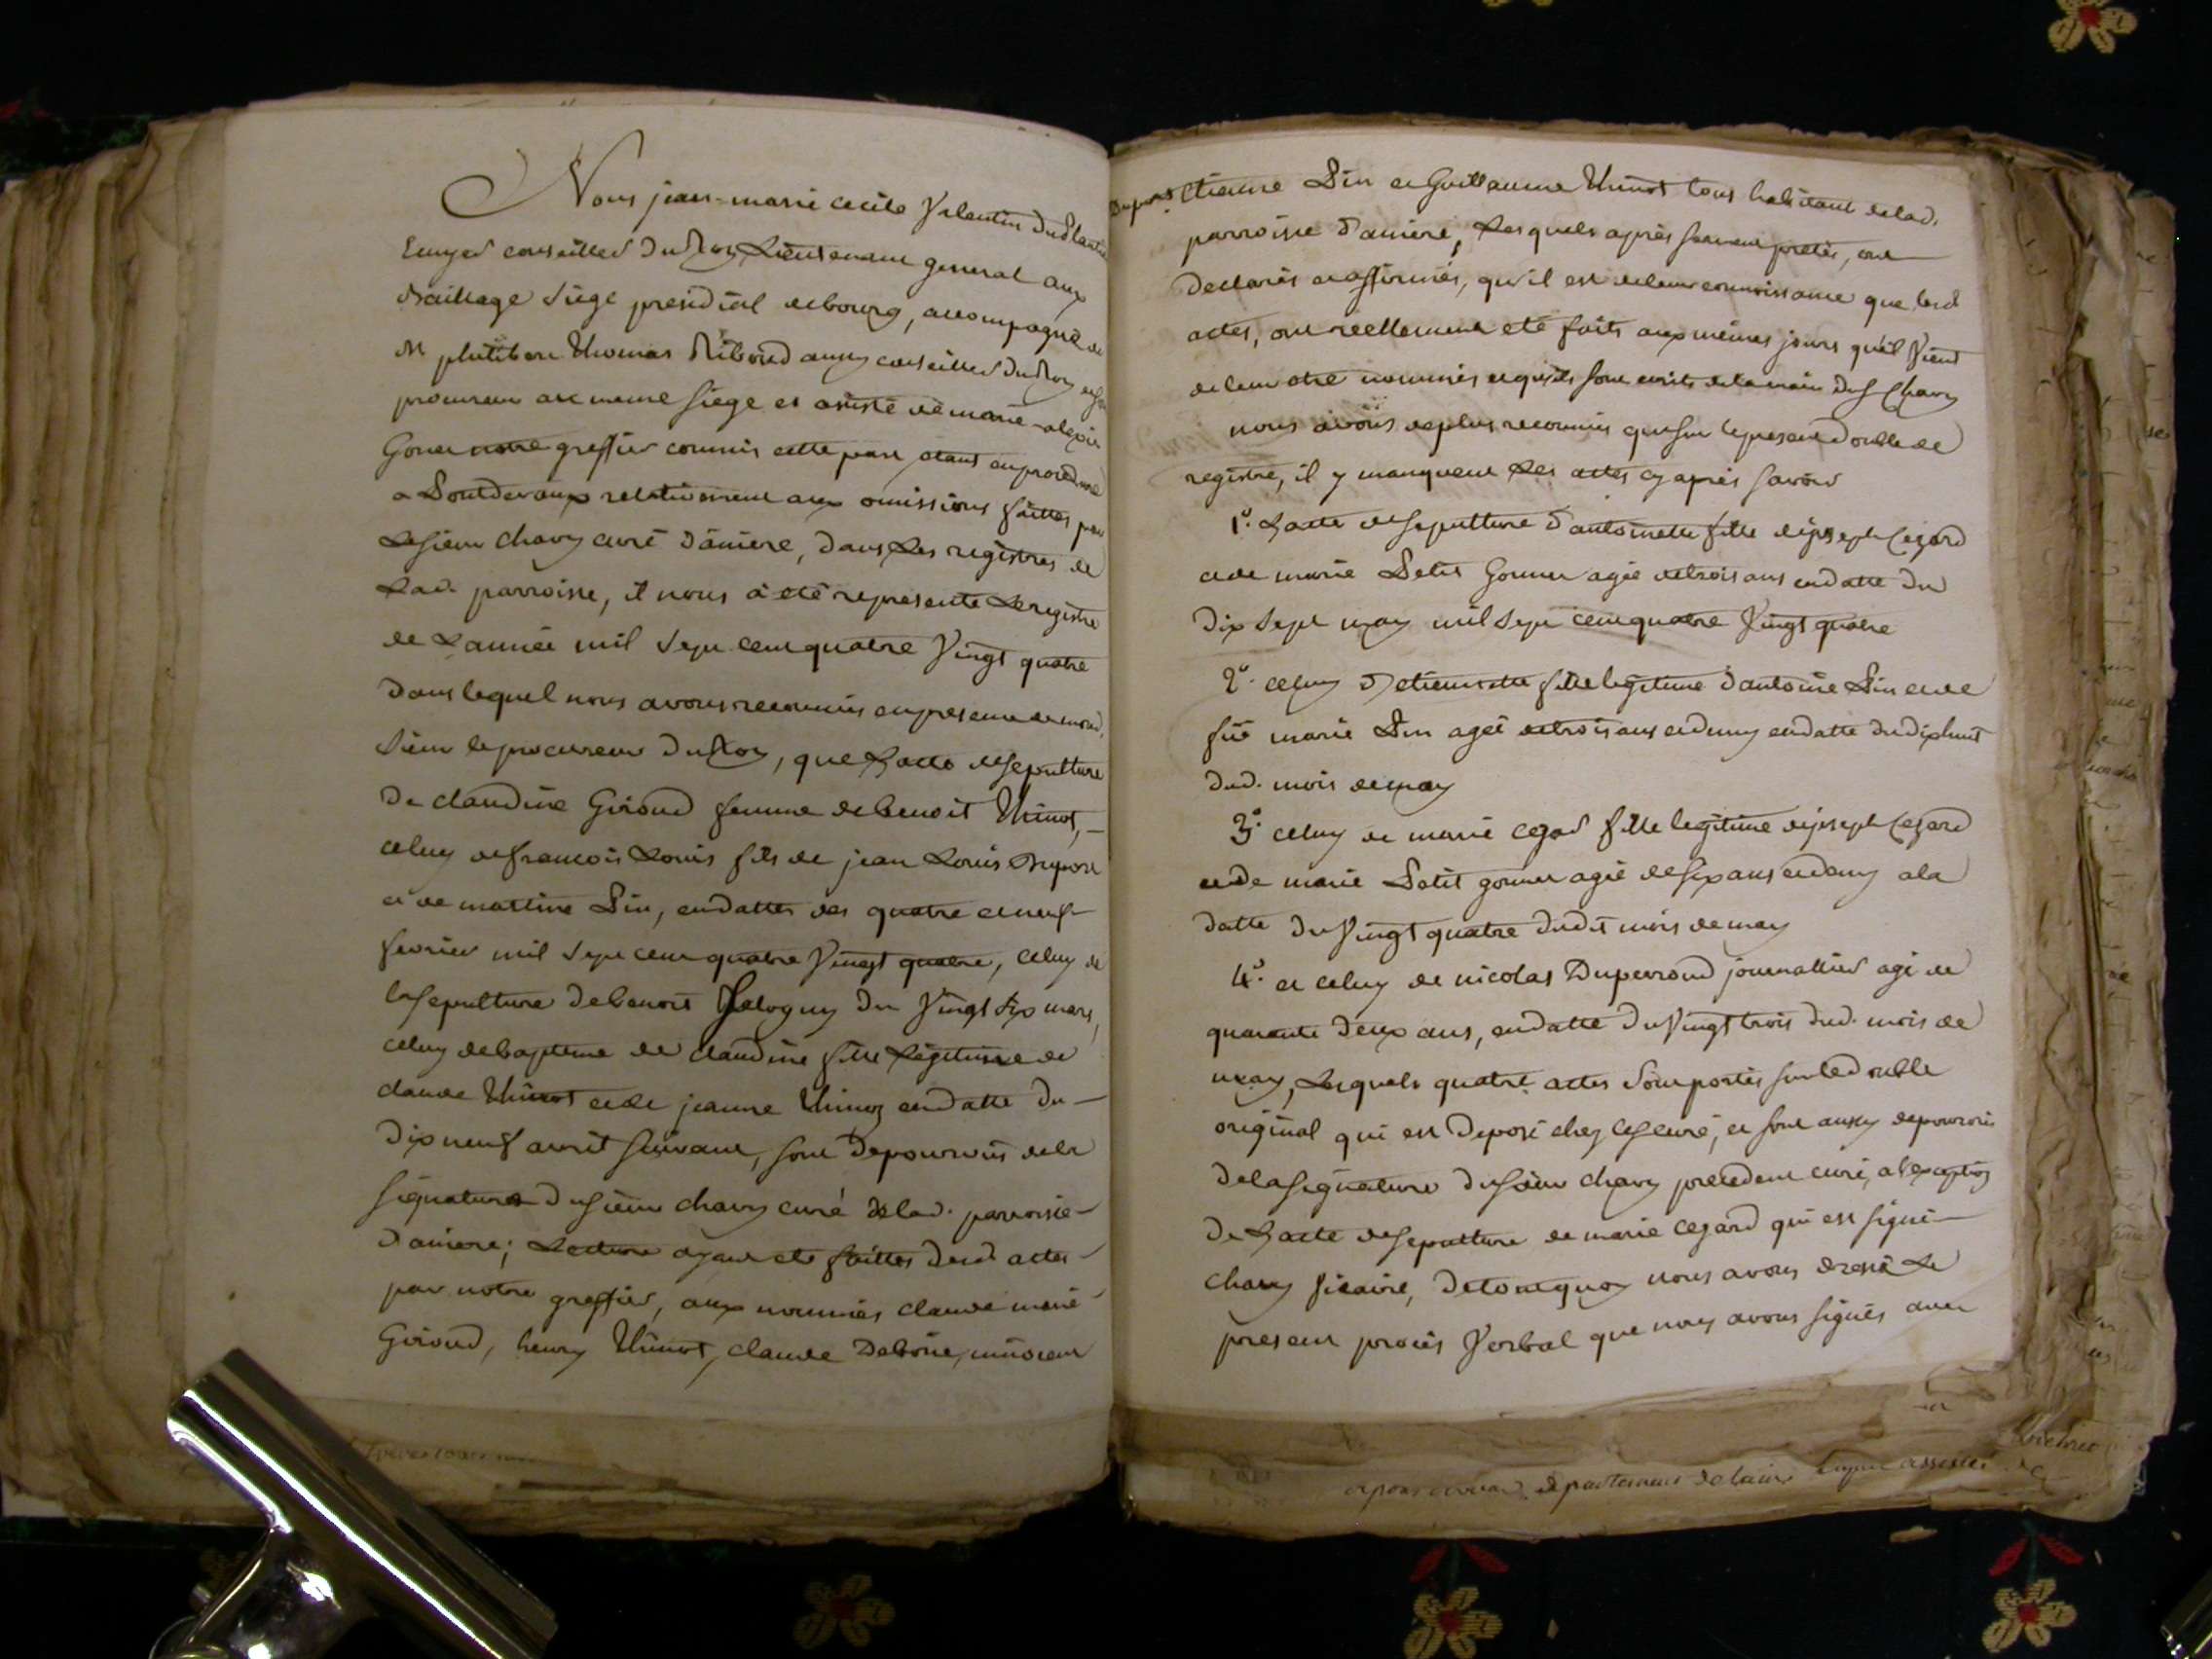 Nous jean-marie cecile Valentin Duplantier
Ecuyer conseiller du Roy Lieutenant general aux
Bailliage Siege presidial de bourg, accompagné de
Mr philibert Thomas Riboud aussy conseiller du Roy et son
procureur au meme siege et assisté de marie-alexis
Goner notre greffier commis cette part etant en procedure
a Pontdevaux relativement aux omissions faittes par
Le sieur Chavy curé d'aniere, dans Les registres de
Lad. parroisse, il nous à eté representé Le registre
de L'année mil sept cent quatre Vingt quatre
dans lequel nous avons reconnus en presence de mond.
Sieur le procureur du Roy, que L'acte de sepulture
de claudine Giroud femme de benoit Thinot,
celuy de francois Louis fils de jean Louis Duport
et de martine Pin, en dattes des quatre et neuf
fevrier mil sept cent quatre Vingt quatre, celuy de
la sepulture de benoit Geloguy du Vingt six mars,
celuy de bapteme de claudine fille Légitime de
claude Thinot et de jeanne Thinoz en datte du
dix neuf avril suivant, sont depourvus de la
signature du sieur Chavy curé de lad. parroisse
daniere; Lecture ayant eté faittes desd. actes
par notre greffier, aux nommés claude marie
Giroud, henry Thinot, claude innocent
Duport Etienne Pin et Guillaume Thinot tous habitant de lad.
parroisse d'aniere, Lesquels après serment pretés, ont
declarés et affirmés, qu'il est de leur connoissance que lesd
actes, ont reellement eté faits aux mêmes jours qu'il Vient
de leur etre nommés et qu'ils sont ecrits de la main du s Chavy
nous avons de plus reconnus que sur le present double de
registre, il y manquent Les actes cy après savoir
1º. L'acte de sepulture d'antoinette fille de joseph Cezard
et de marie Petit Gonner agée de trois ans en datte du
dix sept may mil sept cent quatre Vingt quatre
2º. celuy d'etiennette fille legitime d'antoine Pin et de
füe marie Pin ageé de trois ans et demy en datte du dix huit
dud. mois de may
3º celuy de marie cezard fille legitime de joseph Cezard
et de marie Petit gonner agée de six ans et demy a la
datte du Vingt quatre dudit mois de may
4º. et celuy de nicolas Duperroud journallier agé de
quarante deux ans, en datte du Vingt trois dud. mois de
may, Lesquels quatre actes sont portés sur le double
original qui est deposé chez le s curé, et sont aussy depourvus
de la signature du sieur Chavy precedent curé, a l'exception
de L'acte de sepulture de marie cezard qui est signé
Chavy Vicaire, de tout quoy nous avons dressé Le
present procès Verbal que nous avons signés avec
departement de l'ain